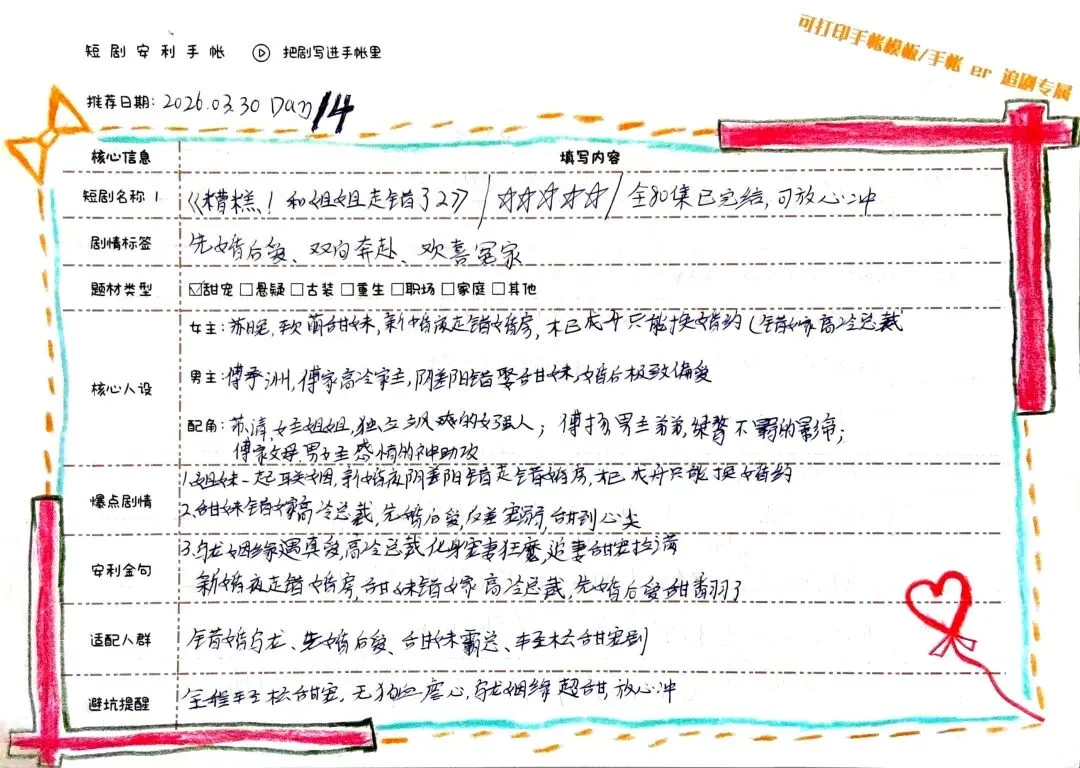 短剧安利手帐 把剧写进手帐里
可打印手帐模板/手帐 er 追剧专属
推荐日期: 2026.03.30 Day 14
核心信息 填写内容
短剧名称 1 《糟糕！和姐姐走错了2》/☆☆☆☆☆/全80集已完结,可放心冲
剧情标签 先婚后爱、双向奔赴、欢喜冤家
题材类型 ☑甜宠□悬疑□古装□重生□职场□家庭□其他
核心人设
女主: 苏晚,软萌甜妹,新婚夜走错婚房,木已成舟只能换婚约(错嫁高冷总裁
男主: 傅予洲,傅家高冷家主,阴差阳错娶甜妹,婚后极致偏爱
配角: 苏清,女主姐姐,独立飒爽的女强人; 傅扬,男主弟弟,绿茶不羁的影帝;
傅家父母,男女主感情的神助攻
爆点剧情
1.姐妹一起联姻,新婚夜阴差阳错走错婚房,木已成舟只能换婚约
2.甜妹错嫁高冷总裁,先婚后爱,反差宠溺,甜到心尖
3.乌龙姻缘遇真爱,高冷总裁化身宠妻狂魔,追妻甜宠拉满
安利金句 新婚夜走错婚房,甜妹错嫁高冷总裁,先婚后爱甜翻了
适配人群 错婚乌龙、先婚后爱、甜妹霸总、轻松甜宠剧
避坑提醒 全程轻松甜宠,无狗血虐心,乌龙姻缘超甜,放心冲